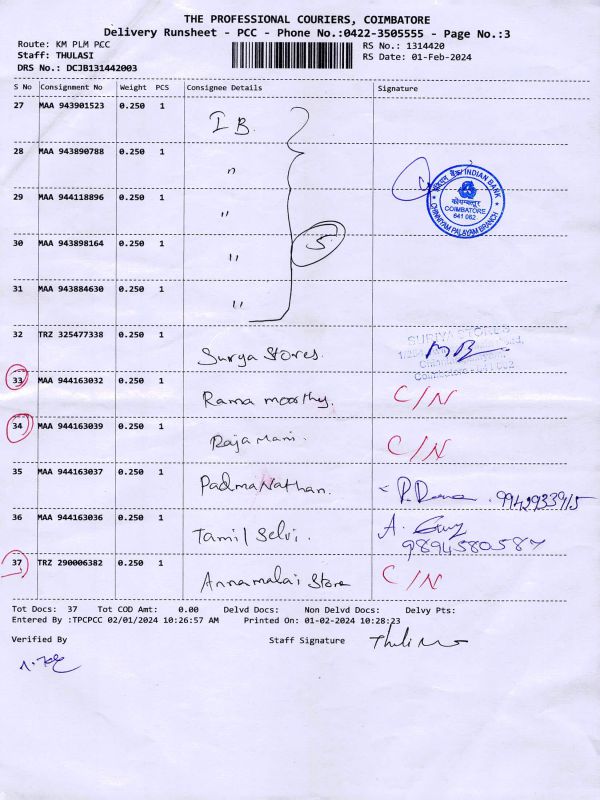 THE PROFESSIONAL COURIERS, COIMBATORE
Delivery Runsheet - PCC - Phone No.:0422-3505555 - Page No.:3
Route: KM PLM PCC RS No.: 1314420
Staff: THULASI RS Date: 01-Feb-2024
DRS No.: DCJB131442003
S No Consignment No Weight PCS Consignee Details Signature
27 MAA 943901523 0.250 1 I B.
28 MAA 943890788 0.250 1 "
29 MAA 944118896 0.250 1 "
30 MAA 943898164 0.250 1 " 5
31 MAA 943884630 0.250 1 "
इंडियन बैंक INDIAN BANK
कोयम्बत्तूर
COIMBATORE
641 062
CHINNIYAM PALAYAM BRANCH
32 TRZ 325477338 0.250 1 Surya Stores. SURIYA STORES
Coimbatore - 641 062
33 MAA 944163032 0.250 1 Rama moorthy. C/N
34 MAA 944163039 0.250 1 Raja Mani. C/N
35 MAA 944163037 0.250 1 Padma Nathan.
36 MAA 944163036 0.250 1 Tamil Selvi. A.
9894580587
37 TRZ 290006382 0.250 1 Annamalai Store C/N
Tot Docs: 37 Tot COD Amt: 0.00 Delvd Docs: Non Delvd Docs: Delvy Pts:
Entered By :TPCPCC 02/01/2024 10:26:57 AM Printed On: 01-02-2024 10:28:23
Verified By Staff Signature